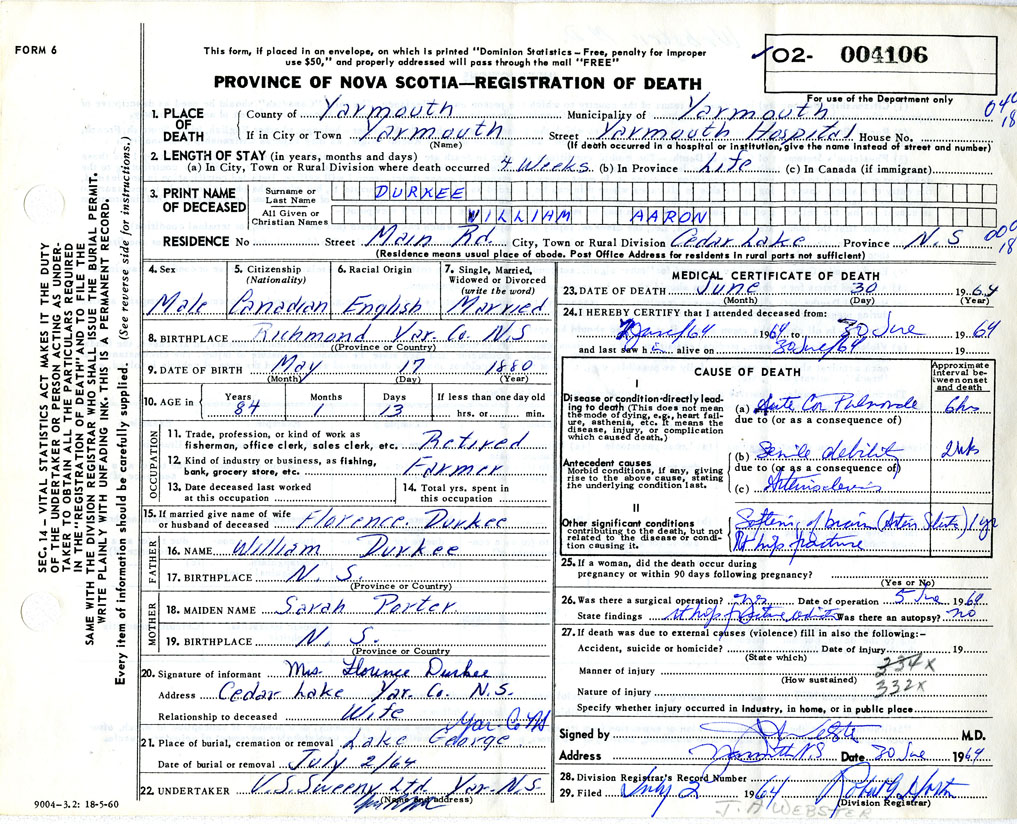 FORM 6
This form, if placed in an envelope, on which is printed "Dominion Statistics – Free, penalty for improper
use $50," and properly addressed will pass through the mail "FREE"
02- 004106
For use of the Department only
PROVINCE OF NOVA SCOTIA—REGISTRATION OF DEATH
SEC. 14 – VITAL STATISTICS ACT MAKES IT THE DUTY
OF THE UNDERTAKER OR PERSON ACTING AS UNDER-
TAKER TO OBTAIN ALL THE PARTICULARS REQUIRED
IN THE "REGISTRATION OF DEATH" AND TO FILE THE
SAME WITH THE DIVISION REGISTRAR WHO SHALL ISSUE THE BURIAL PERMIT.
WRITE PLAINLY WITH UNFADING INK. THIS IS A PERMANENT RECORD.
Every item of information should be carefully supplied. (See reverse side for instructions.)
1. PLACE OF DEATH
County of Yarmouth Municipality of Yarmouth 040
18
If in City or Town Yarmouth Street Yarmouth Hospital House No.
(Name) (If death occurred in a hospital or institution, give the name instead of street and number)
2. LENGTH OF STAY (in years, months and days)
(a) In City, Town or Rural Division where death occurred 4 Weeks (b) In Province Life (c) In Canada (if immigrant)
3. PRINT NAME OF DECEASED
Surname or Last Name DURKEE
All Given or Christian Names WILLIAM AARON
RESIDENCE No Street Main Rd. City, Town or Rural Division Cedar Lake Province N.S 000
18
(Residence means usual place of abode. Post Office Address for residents in rural parts not sufficient)
4. Sex Male
5. Citizenship (Nationality) Canadian
6. Racial Origin English
7. Single, Married, Widowed or Divorced (write the word) Married
8. BIRTHPLACE Richmond Yar. Co. N.S
(Province or Country)
9. DATE OF BIRTH May 17 1880
(Month) (Day) (Year)
10. AGE in Years 84 Months 1 Days 13 If less than one day old hrs. or min.
OCCUPATION
11. Trade, profession, or kind of work as
fisherman, office clerk, sales clerk, etc. Retired
12. Kind of industry or business, as fishing,
bank, grocery store, etc. Farmer
13. Date deceased last worked
at this occupation
14. Total yrs. spent in
this occupation
15. If married give name of wife
or husband of deceased Florence Durkee
FATHER
16. NAME William Durkee
17. BIRTHPLACE N.S.
(Province or Country)
MOTHER
18. MAIDEN NAME Sarah Porter
19. BIRTHPLACE N.S.
(Province or Country)
20. Signature of informant Mrs. Florence Durkee
Address Cedar Lake Yar. Co. N.S.
Relationship to deceased Wife
Yar. Co NS
21. Place of burial, cremation or removal Lake George
Date of burial or removal July 2/64
22. UNDERTAKER V.S. Sweeny Ltd Yar. N.S.
(Name and address)
9004–3.2: 18-5-60
MEDICAL CERTIFICATE OF DEATH
23. DATE OF DEATH June 30 1964
(Month) (Day) (Year)
24. I HEREBY CERTIFY that I attended deceased from:
June/64 1964 to 30 June 1964
and last saw h alive on 30 June/64 19
CAUSE OF DEATH
Approximate interval between onset and death
I
Disease or condition directly lead-
ing to death (This does not mean
the mode of dying, e.g., heart fail-
ure, asthenia, etc. It means the
disease, injury, or complication
which caused death.)
(a) Acute Cor Pulmonale 6 hrs
due to (or as a consequence of)
Antecedent causes
Morbid conditions, if any, giving
rise to the above cause, stating
the underlying condition last.
(b) Senile debility 2 wks
due to (or as a consequence of)
(c) Arteriosclerosis
II
Other significant conditions
contributing to the death, but not
related to the disease or condi-
tion causing it.
Softening of brain 1 yr
Rt hip fracture
25. If a woman, did the death occur during
pregnancy or within 90 days following pregnancy?
(Yes or No)
26. Was there a surgical operation? yes Date of operation 5 June 1964
State findings Rt hip fracture Was there an autopsy? no
27. If death was due to external causes (violence) fill in also the following:–
Accident, suicide or homicide? Date of injury 19
(State which)
334x
Manner of injury
(How sustained)
332x
Nature of injury
Specify whether injury occurred in industry, in home, or in public place
Signed by J A Webster M.D.
Address Yarmouth N.S. Date 30 June 1964
28. Division Registrar's Record Number
29. Filed July 2 1964 Robert Horton
(Division Registrar)
J. A WEBSTER